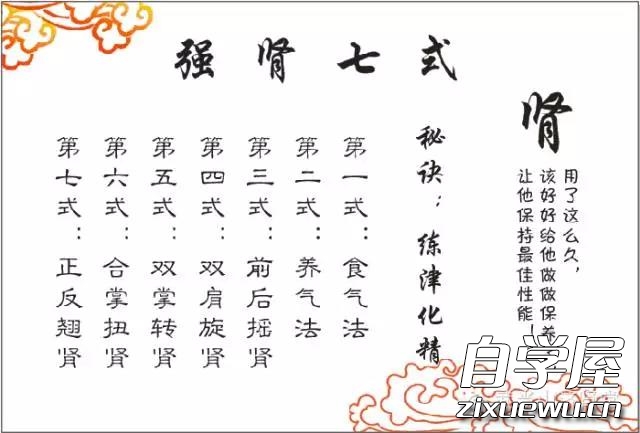 强肾七式
肾
用了这么久，
该好好给他做做保养
让他保持最佳性能！
秘诀：练津化精
第一式：食气法
第二式：养气法
第三式：前后摇肾
第四式：双肩旋肾
第五式：双掌转肾
第六式：合掌扭肾
第七式：正反翘肾
自学屋
zixuewu.cn